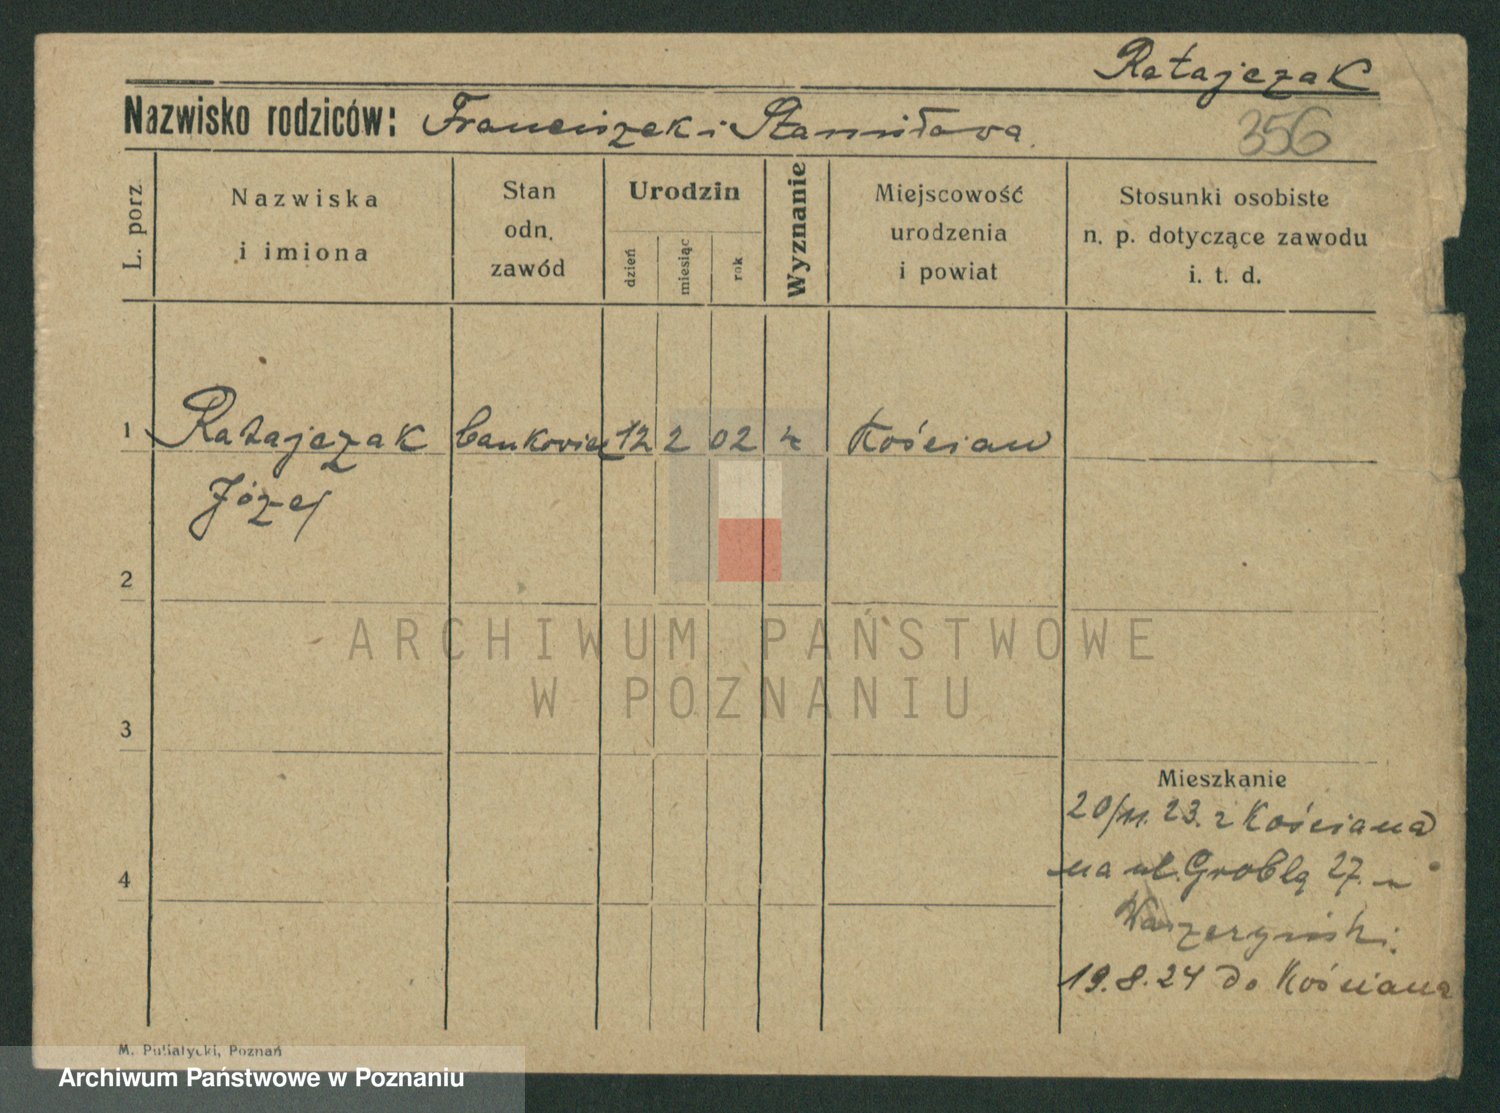 Ratajczak
Nazwisko rodziców: Franciszek i Stanisława
356
L. porz.
Nazwiska
i imiona
Stan
odn.
zawód
Urodzin
dzień
miesiąc
rok
Wyznanie
Miejscowość
urodzenia
i powiat
Stosunki osobiste
n. p. dotyczące zawodu
i. t. d.
1 Ratajczak bankowiec 12 2 02 k Kościan
Józef
2
ARCHIWUM PAŃSTWOWE
W POZNANIU
3
Mieszkanie
20/11. 23. z Kościana
4
na ul. Groblą 27.
19.8.24 do Kościana
M. Puliatycki, Poznań
Archiwum Państwowe w Poznaniu